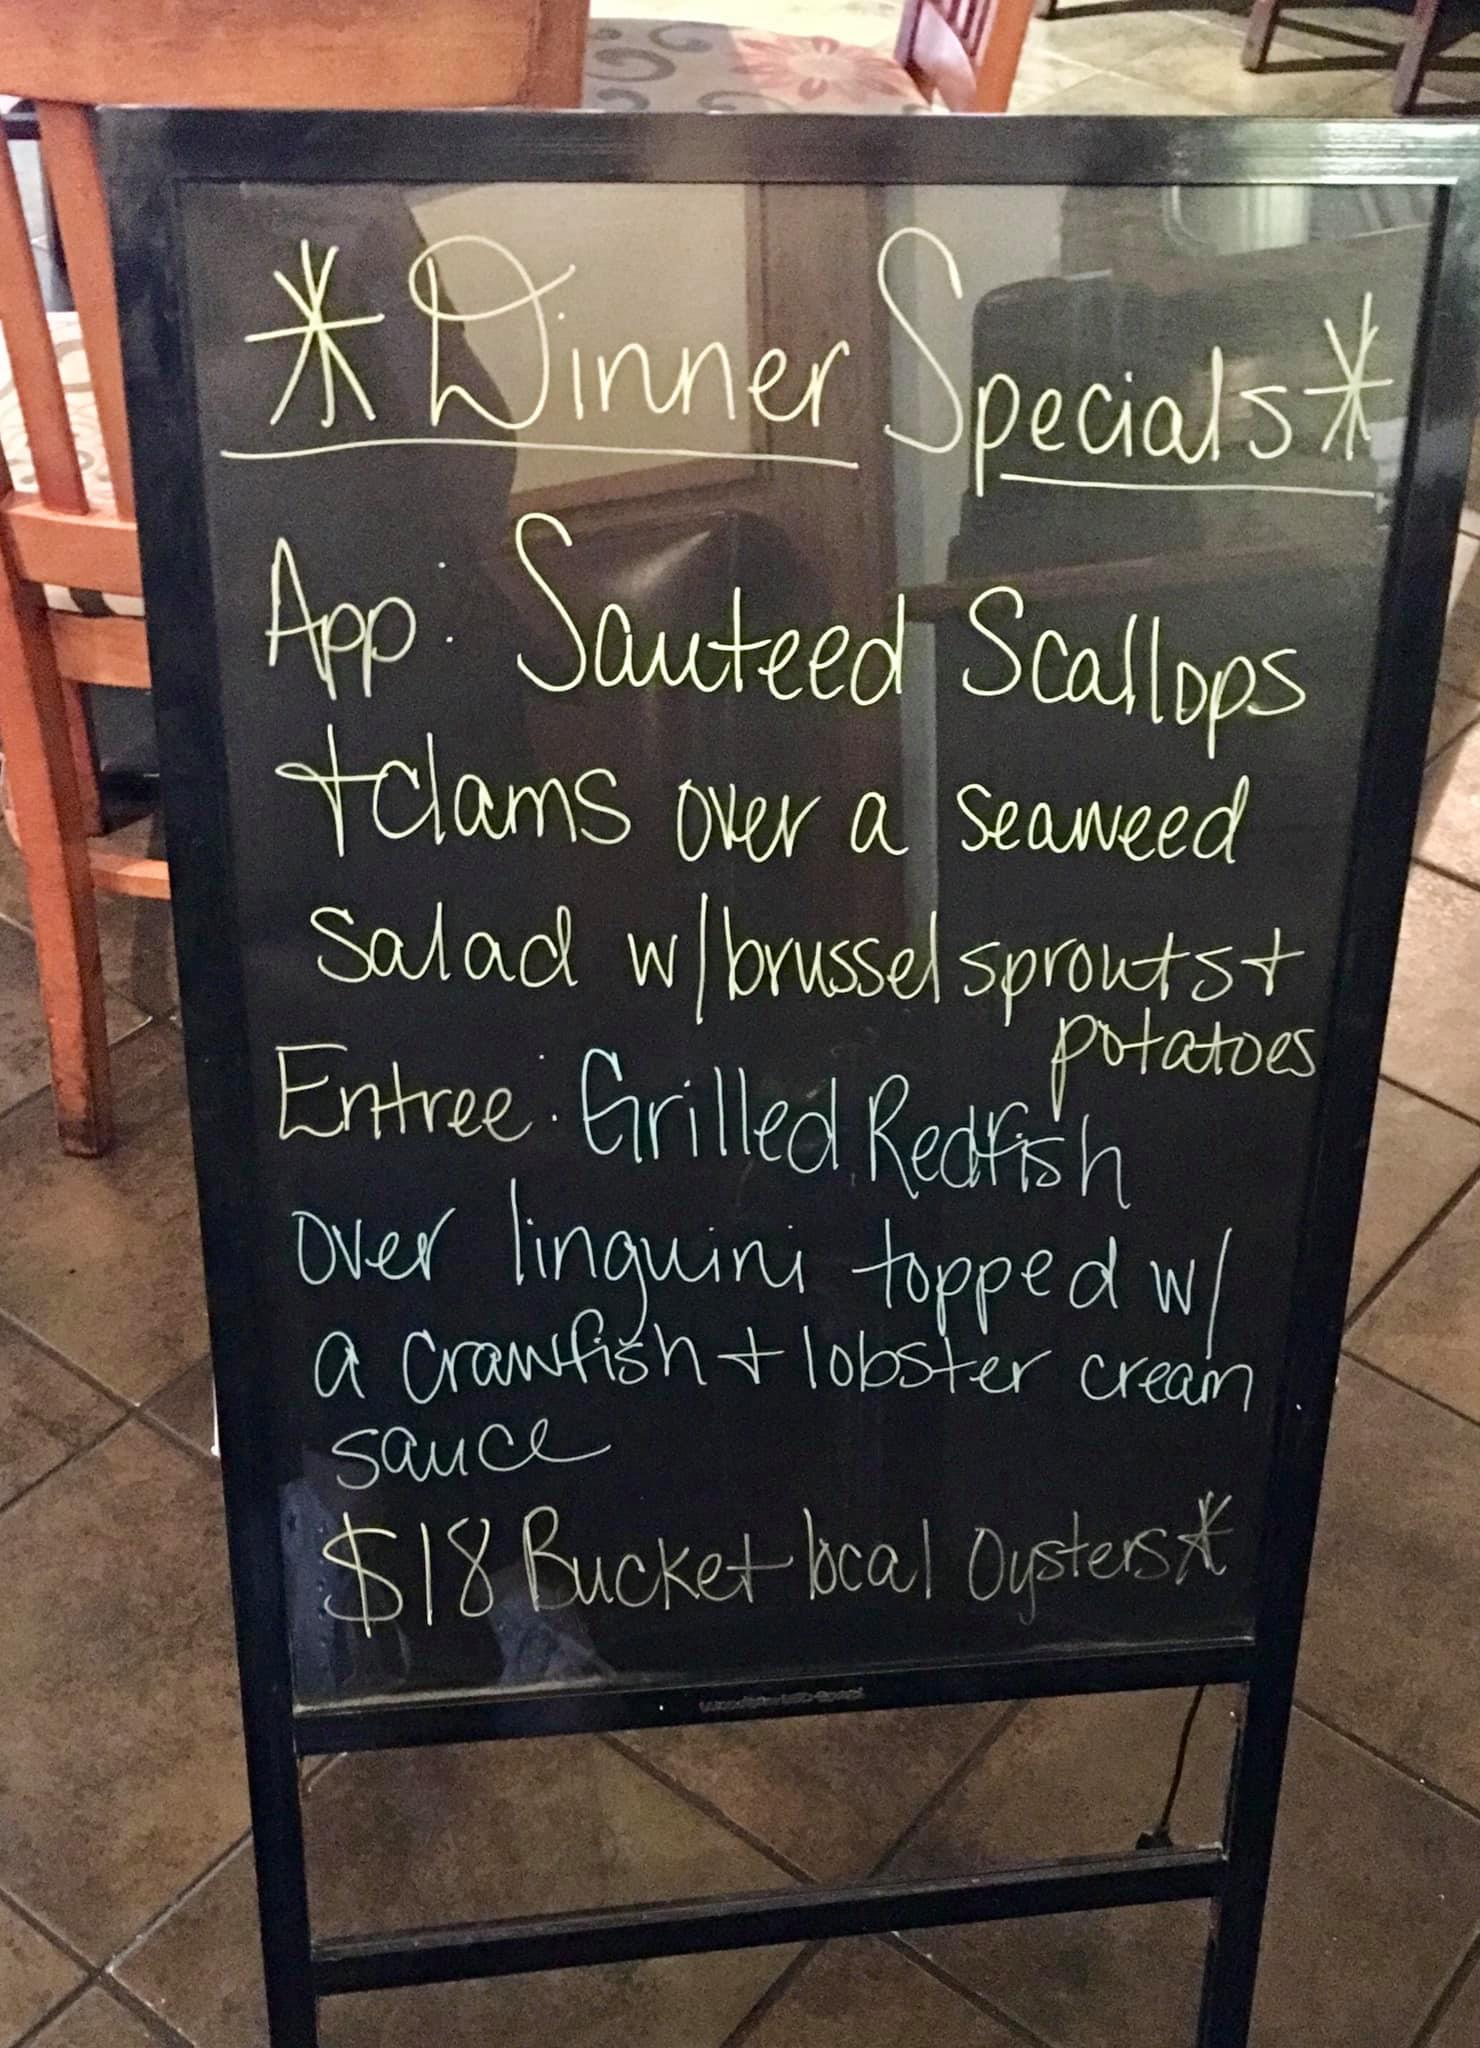 * Dinner Specials *
App: Sauteed Scallops
+ Clams over a seaweed
Salad w/ brussel sprouts +
potatoes
Entree: Grilled Redfish
over linguini topped w/
a crawfish + lobster cream
sauce
$18 Bucket local Oysters *